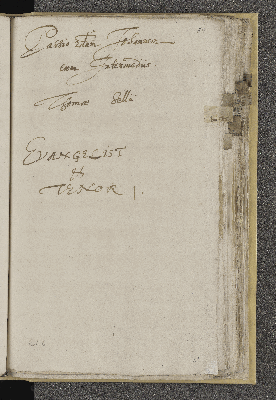 Passio secundum Johannem
cum Intermediis.
Thomæ Sellii
EVANGELIST
et
TENOR 1.